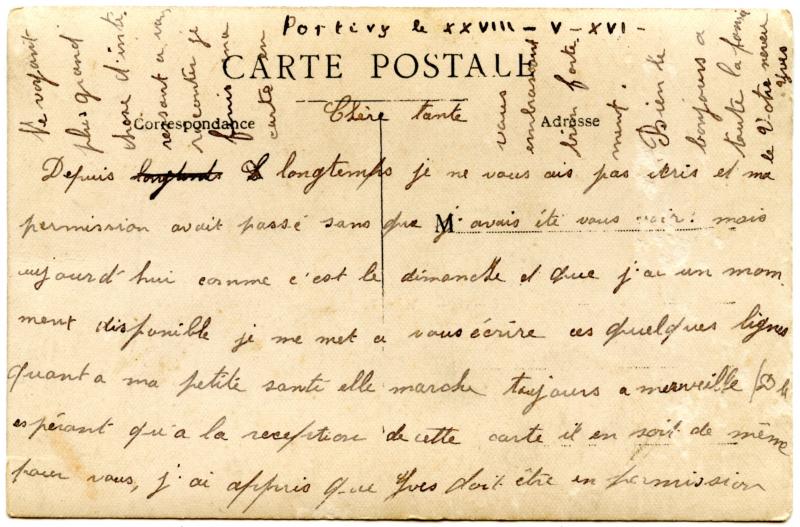 Portivy le XXVIII - V - XVI -
CARTE POSTALE
Correspondance
Adresse
M
Chère tante
Depuis longtemps je ne vous ais pas écris et ma
permission avait passé sans que j'avais été vous voir. mais
aujourd'hui comme c'est le dimanche et que j'ai un mom
ment disponible je me met a vous écrire ces quelques lignes
Quant a ma petite santé elle marche toujours a merveille
espérant qu'a la reception de cette carte il en soit de même
pour vous, j'ai appris que Yves doit être en permission
Ne voyant
plus grand
chose d'inté
ressant a vous
raconter je
finis ma
carte en
vous
embrassant
bien forte
ment.
Bien le
bonjours a
toute la famille
le Votre neveu
Yves